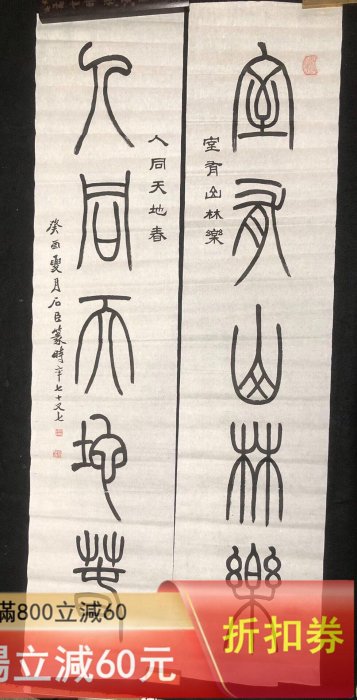 室有山林樂
室有山林樂
人同天地春
人同天地春
癸酉夏月石臣篆時年七十又七
滿800立減60
立減60元
折扣券